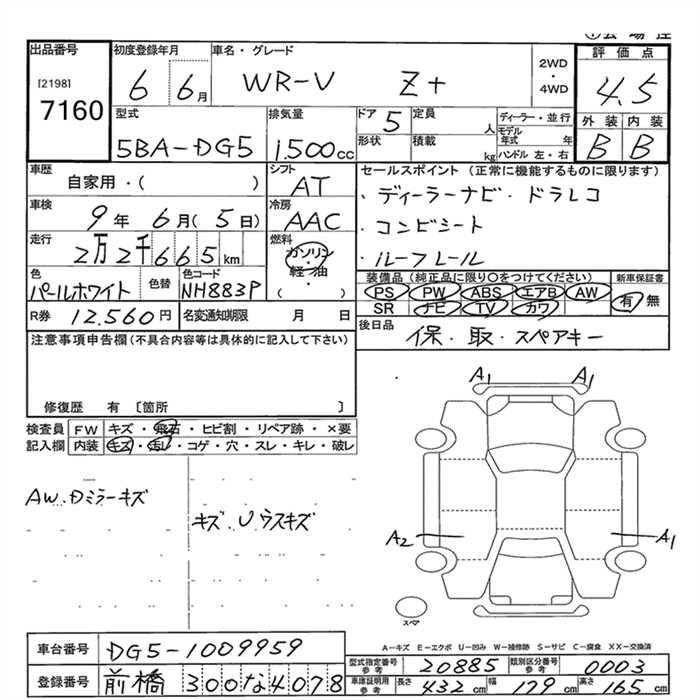 出品番号 初度登録年月 車名・グレード 2WD・4WD 評価点
[2198]
7160
6 6月 WR-V Z+ 4.5
型式 排気量 ドア 定員 ディーラー・並行 外装 内装
5BA-DG5 1.500cc 5 人 モデル年式 年 B B
形状 積載 kg ハンドル 左・右
車歴 シフト セールスポイント (正常に機能するものに限ります)
自家用・( ) AT ・ディーラーナビ・ドラレコ
車検 冷房
9年 6月( 5日) AAC ・コンビシート
走行 燃料
2万2千665km ガソリン・軽油・( ) ・ルーフレール
色 色替 色コード 装備品 (純正品に限り○をつけてください) 新車保証書
パールホワイト NH883P PS PW ABS エアB AW 有・無
SR ナビ TV カワ
R券 12.560円 名変通知期限 月 日 後日品
保・取・スペアキー
注意事項申告欄(不具合内容等は具体的に記入して下さい)
修復歴 有 [箇所 ]
A1 A1
検査員 FW キズ・飛石・ヒビ割・リペア跡・×要
記入欄 内装 キズ・汚レ・コゲ・穴・スレ・キレ・破レ
AW.Dミラーキズ
キズ.Uウスキズ
A2 A1
スペア
A-キズ E-エクボ U-凹み W-補修跡 S-サビ C-腐食 XX-交換済
車台番号 DG5-1009959
型式指定番号 参考 20885 類別区分番号 参考 0003
登録番号 前橋 300な4078
車庫証明用 参考 長さ 432cm 幅 179cm 高さ 165cm